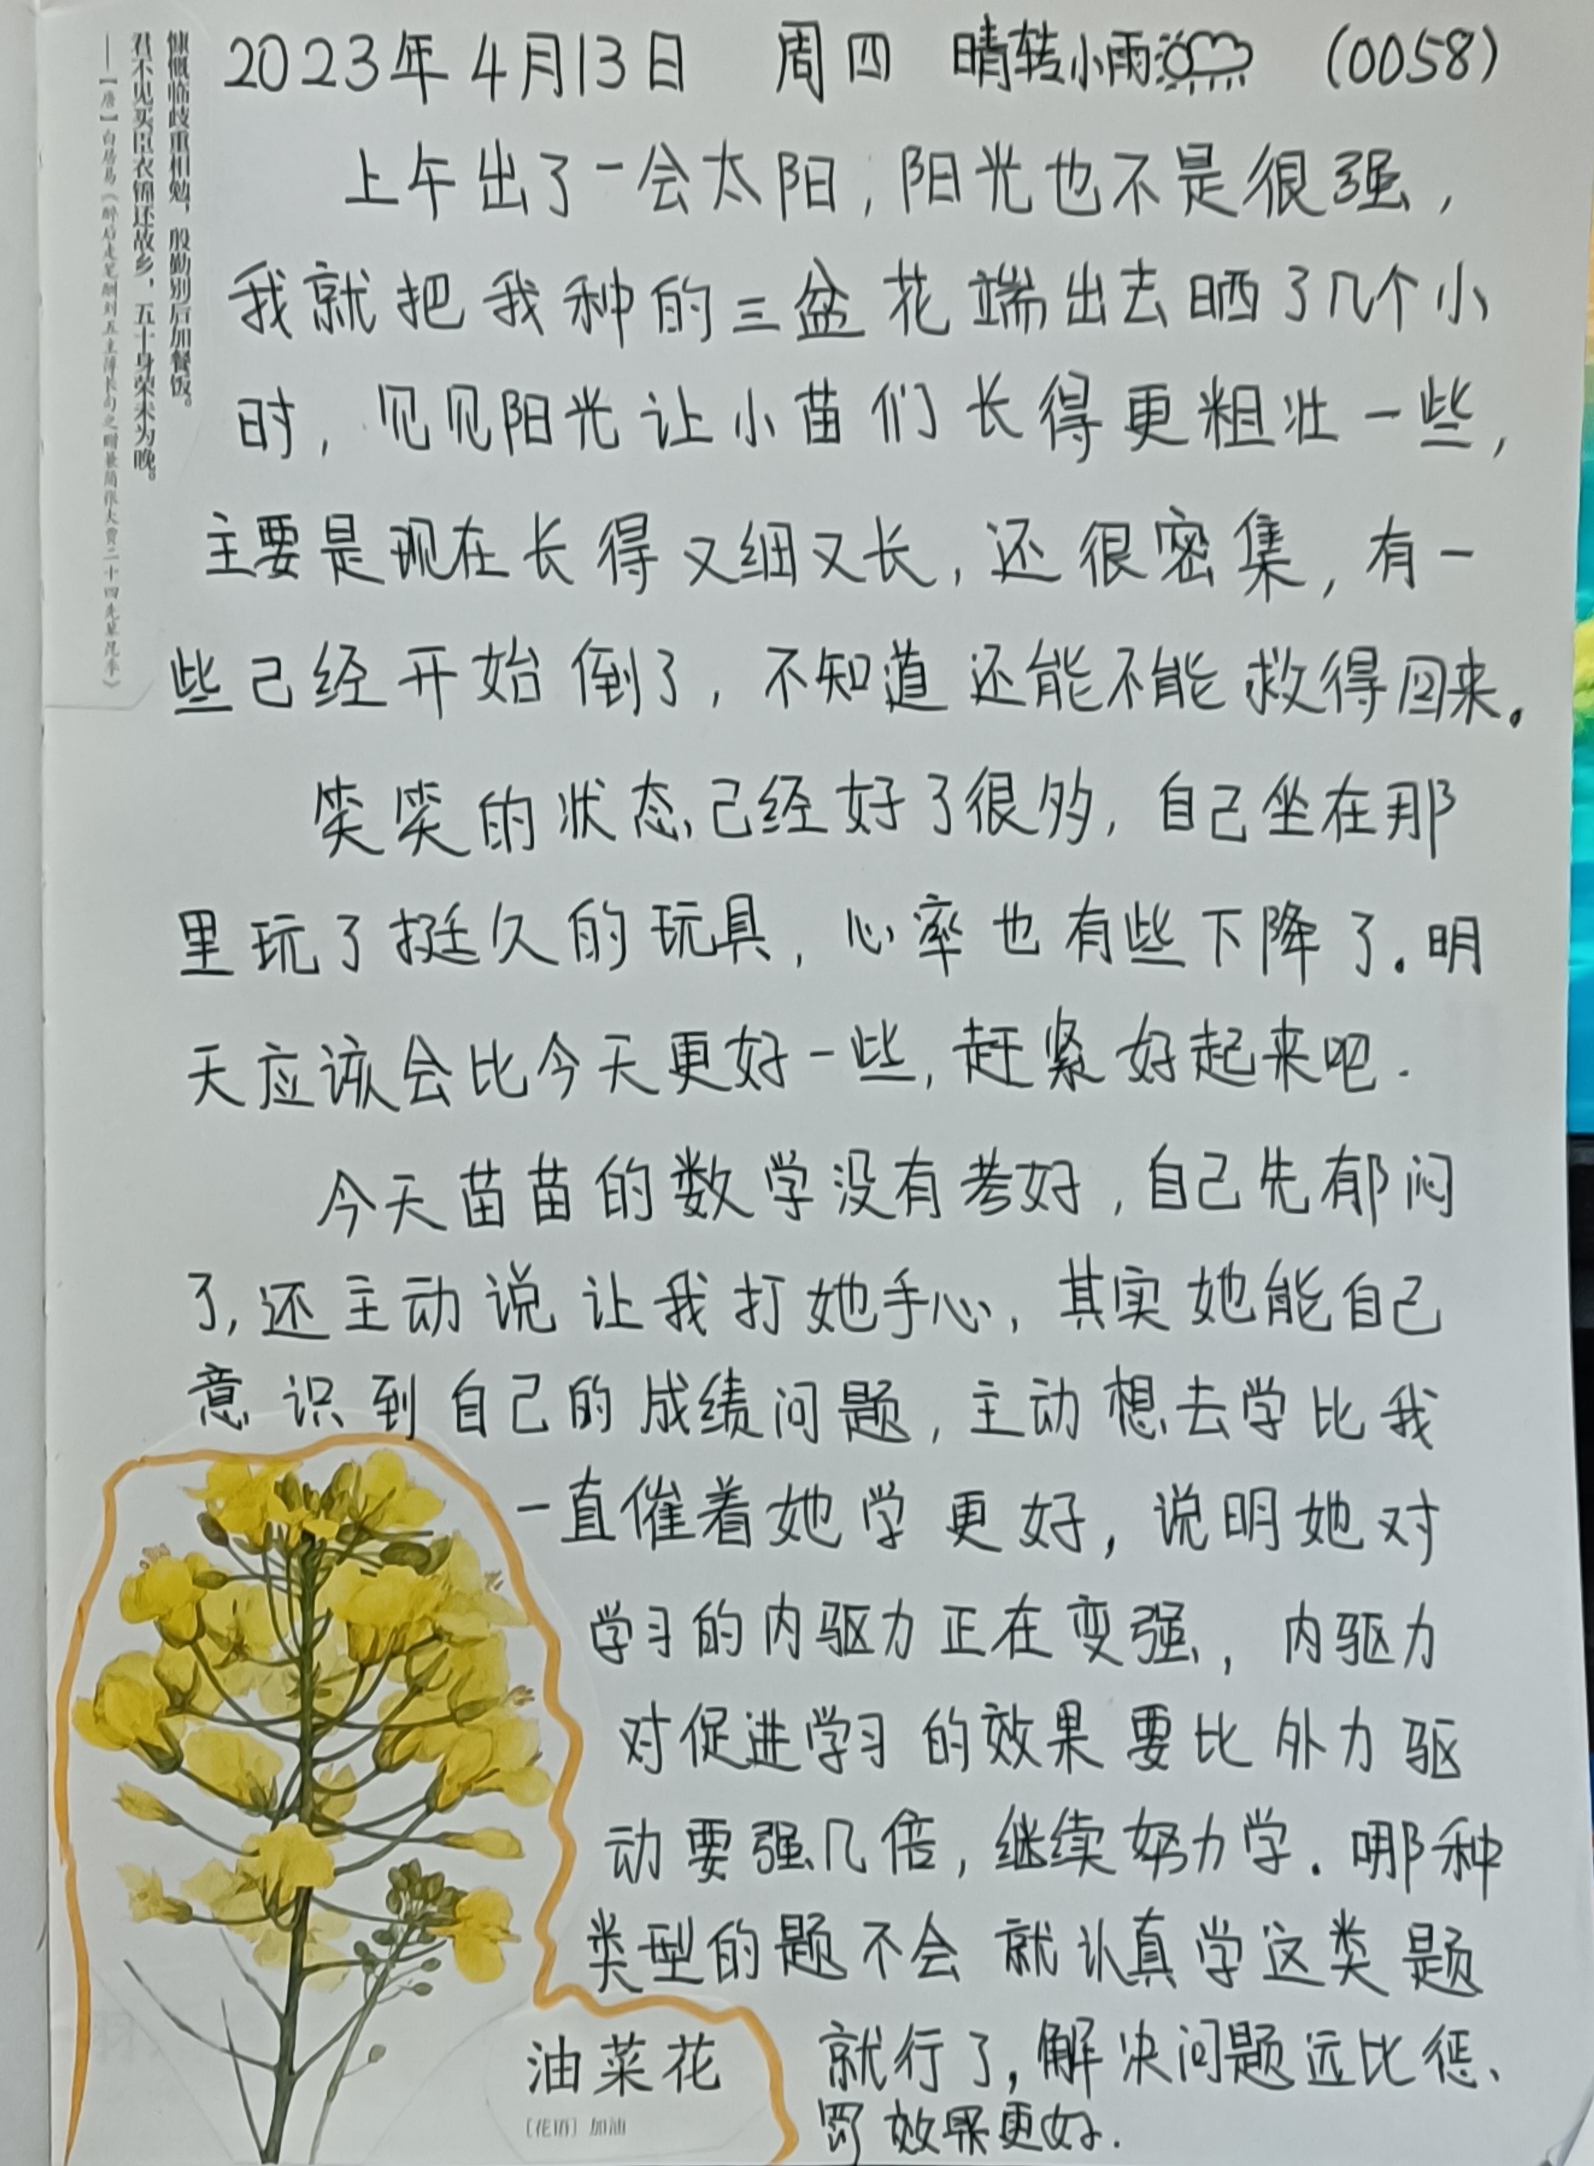 慷慨临歧重相勉，殷勤别后加餐饭。
君不见买臣衣锦还故乡，五十身荣未为晚。
——【唐】白居易《醉后走笔酬刘五主簿长句之赠兼简张大贾二十四先辈昆季》
2023年4月13日 周四 晴转小雨 (0058)
上午出了一会太阳，阳光也不是很强，
我就把我种的三盆花端出去晒了几个小
时，见见阳光让小苗们长得更粗壮一些，
主要是现在长得又细又长，还很密集，有一
些已经开始倒了，不知道还能不能救得回来。
笑笑的状态已经好了很多，自己坐在那
里玩了挺久的玩具，心率也有些下降了.明
天应该会比今天更好一些，赶紧好起来吧.
今天苗苗的数学没有考好，自己先郁闷
了，还主动说让我打她手心，其实她能自己
意识到自己的成绩问题，主动想去学比我
一直催着她学更好，说明她对
学习的内驱力正在变强，内驱力
对促进学习的效果要比外力驱
动要强几倍，继续努力学.哪种
类型的题不会就认真学这类题
就行了，解决问题远比惩
罚效果更好.
油菜花
〔花语〕加油